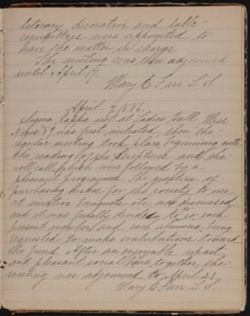 literary decoration and table
committees were appointed to
have the matter in charge.
The meeting was then adjourned
until April 17.
Mary E. Farr L. S.
April
Sigma Kappa met at Ladies Hall. Miss
was first initiated, then the
regular meeting took place, beginning with
the reading of the Scriptures, and the
roll-call, which were followed by a
pleasant programme. The question of
purchasing dishes for the society to use
at entire banquets etc. was discussed
and it was finally decided
present members and each alumna, being
requested to make contributions toward
the fund. After an enjoyable repast,
and pleasant social time together, the
meeting was adjourned to April 23.
Mary E. Farr L. S.